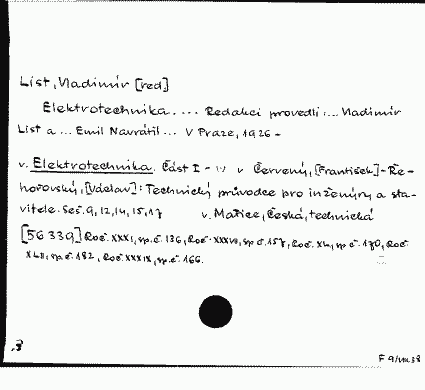 List, Vladimír [red]
Elektrotechnika.... Redakcí provedli:... Vladimír
List a... Emil Navrátil... V Praze, 1926 -
v. Elektrotechnika. Část I - IV v Červený, [František] - Ře-
hořovský, [Václav]: Technický průvodce pro inženýry a sta-
vitele. Seš. 9, 12, 14, 15, 17 v. Matice, Česká, technická
[56339] Roč. XXXI, sp. č. 136, Roč. XXXVII, sp. č. 157, Roč. XL, sp. č. 170, Roč
XLII, sp. č. 182, Roč. XXXIX, sp. č. 166.
F 9/